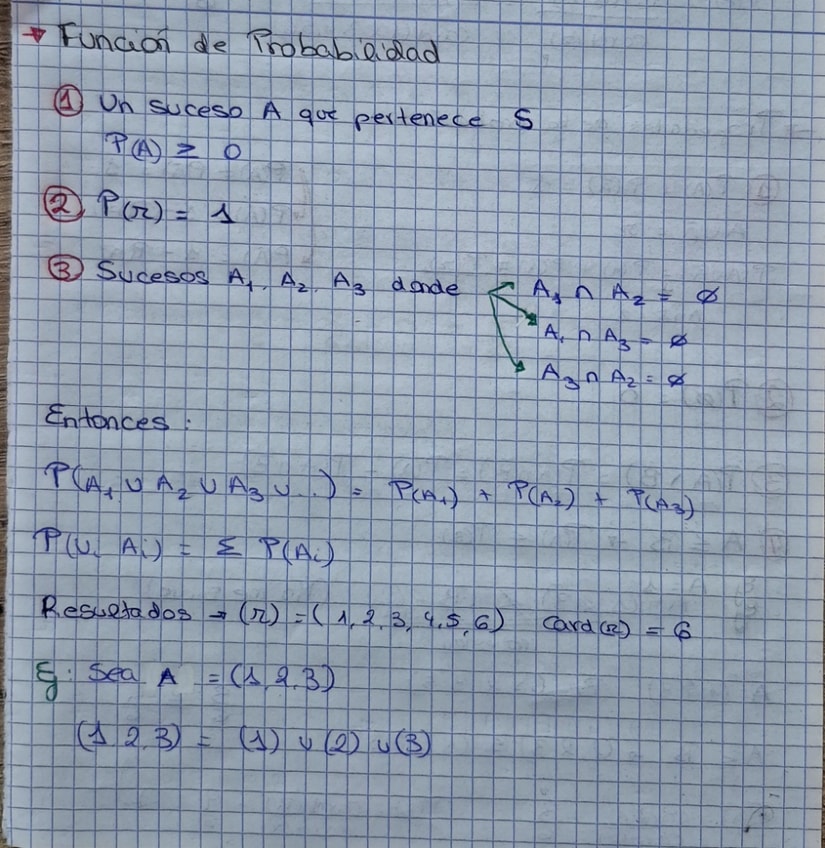 Función de Probabilidad
① Un suceso A que pertenece S
P(A) ≥ 0
② P(Ω) = 1
③ Sucesos A₁, A₂, A₃ donde A₁ ∩ A₂ = ∅
A₁ ∩ A₃ = ∅
A₃ ∩ A₂ = ∅
Entonces:
P(A₁ ∪ A₂ ∪ A₃ ∪ ...) = P(A₁) + P(A₂) + P(A₃)
P(∪ᵢ Aᵢ) = Σ P(Aᵢ)
Resultados → (Ω) = (1, 2, 3, 4, 5, 6) Card(Ω) = 6
Ej: Sea A = (1, 2, 3)
(1, 2, 3) = (1) ∪ (2) ∪ (3)